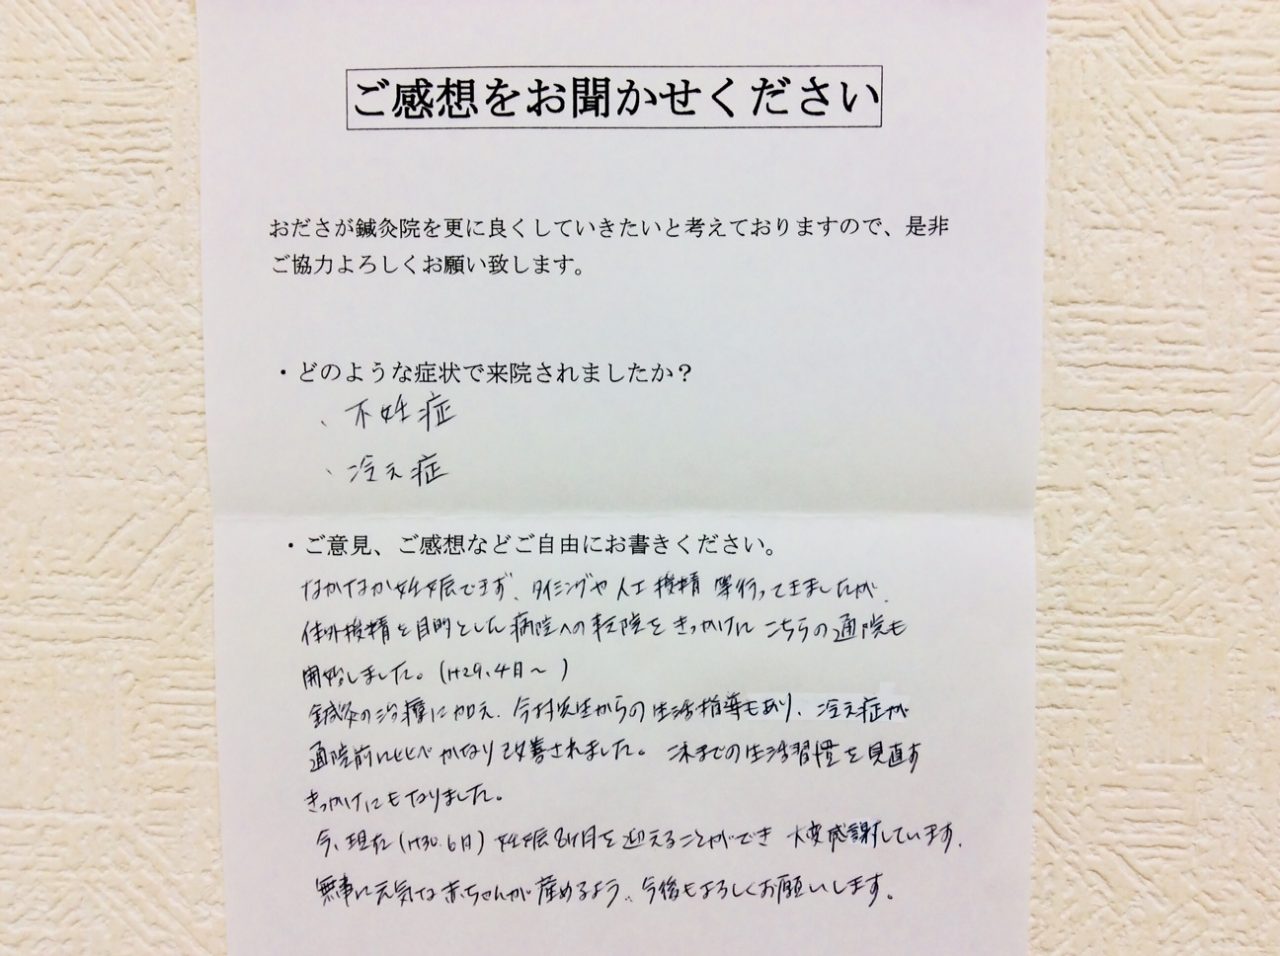 ご感想をお聞かせください
おださが鍼灸院を更に良くしていきたいと考えておりますので、是非
ご協力よろしくお願い致します。
・どのような症状で来院されましたか？
、不妊症
、冷え症
・ご意見、ご感想などご自由にお書きください。
なかなか妊娠できず、タイミングや人工授精 等行ってきましたが、
体外授精を目的とした病院への転院をきっかけに こちらの通院も
開始しました。(H29.4月〜 )
鍼灸の治療に加え、今村先生からの生活指導もあり、冷え症が
通院前に比べかなり改善されました。これまでの生活習慣を見直す
きっかけにもなりました。
今、現在(H30.6月)妊娠8ヶ月を迎えることができ 大変感謝しています。
無事に元気な赤ちゃんが産めるよう、今後もよろしくお願いします。